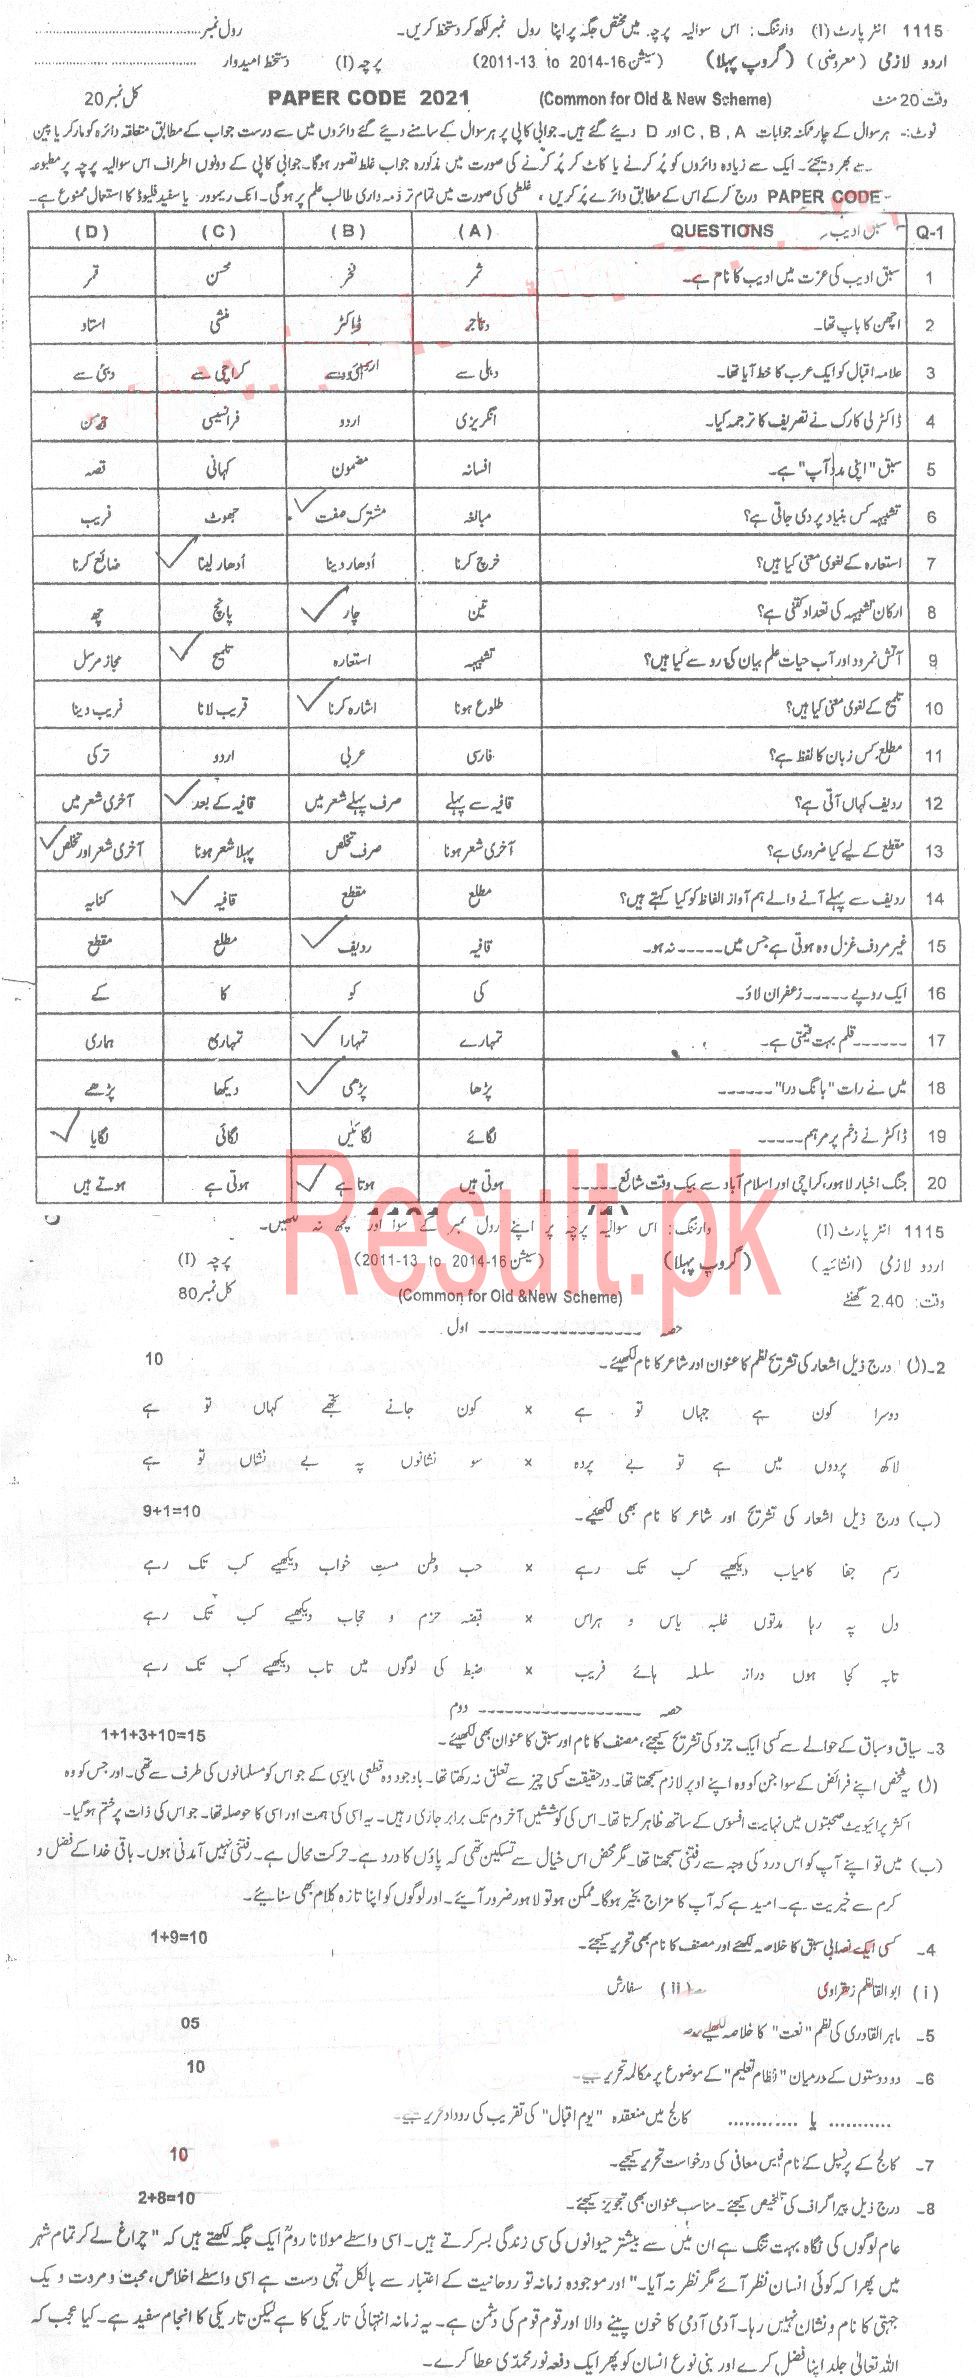 1115 انٹر پارٹ (I) وارننگ : اس سوالیہ پرچہ میں مختص جگہ پر اپنا رول نمبر لکھ کر دستخط کریں۔ رول نمبر
اردو لازمی (معروضی) (گروپ پہلا) (سیشن 16-2014 to 2011-13) پرچہ (I) دستخط امیدوار
وقت 20 منٹ (Common for Old & New Scheme) PAPER CODE 2021 کل نمبر 20
نوٹ:۔ ہر سوال کے چار ممکنہ جوابات A ,B ,C اور D دیئے گئے ہیں۔ جوابی کاپی پر ہر سوال کے سامنے دیئے گئے دائروں میں سے درست جواب کے مطابق متعلقہ دائرہ کو مارکر یا پین
سے بھر دیجئے۔ ایک سے زیادہ دائروں کو پُر کرنے یا کاٹ کر پُر کرنے کی صورت میں مذکورہ جواب غلط تصور ہوگا۔ جوابی کاپی کے دونوں اطراف اس سوالیہ پرچہ پر مطبوعہ
PAPER CODE درج کر کے اس کے مطابق دائرے پُر کریں، غلطی کی صورت میں تمام تر ذمہ داری طالب علم پر ہوگی۔ انک ریموور یا سفید فلیوڈ کا استعمال ممنوع ہے۔
Q-1 سبق ادیب QUESTIONS (A) (B) (C) (D)
1 سبق ادیب کی عزت میں ادیب کا نام ہے۔ ثمر فخر محسن قمر
2 اچھن کا باپ تھا۔ تاجر ڈاکٹر منشی استاد
3 علامہ اقبال کو ایک عرب کا خط آیا تھا۔ دہلی سے کراچی سے دبئی سے
4 ڈاکٹر لی کارک نے تصریف کا ترجمہ کیا۔ انگریزی اردو فرانسیسی جرمن
5 سبق "اپنی مدد آپ" ہے۔ افسانہ مضمون کہانی قصہ
6 تشبیہہ کس بنیاد پر دی جاتی ہے؟ مبالغہ مشترک صفت جھوٹ فریب
7 استعارہ کے لغوی معنی کیا ہیں؟ خرچ کرنا اُدھار دینا اُدھار لینا ضائع کرنا
8 ارکان تشبیہہ کی تعداد کتنی ہے؟ تین چار پانچ چھ
9 آتش نمرود اور آب حیات علم بیان کی رو سے کیا ہیں؟ تشبیہہ استعارہ تلمیح مجاز مرسل
10 تلمیح کے لغوی معنی کیا ہیں؟ طلوع ہونا اشارہ کرنا قریب لانا فریب دینا
11 مطلع کس زبان کا لفظ ہے؟ فارسی عربی اردو ترکی
12 ردیف کہاں آتی ہے؟ قافیہ سے پہلے صرف پہلے شعر میں قافیہ کے بعد آخری شعر میں
13 مقطع کے لیے کیا ضروری ہے؟ آخری شعر ہونا صرف تخلص پہلا شعر ہونا آخری شعر اور تخلص
14 ردیف سے پہلے آنے والے ہم آواز الفاظ کو کیا کہتے ہیں؟ مطلع مقطع قافیہ کنایہ
15 غیر مردف غزل وہ ہوتی ہے جس میں ----- نہ ہو۔ قافیہ ردیف مطلع مقطع
16 ایک روپے ----- زعفران لاؤ۔ کی کو کا کے
17 ------ قلم بہت قیمتی ہے۔ تمہارے تمہارا تمہاری ہماری
18 میں نے رات "بانگ درا" ------ پڑھا پڑھی دیکھا پڑھے
19 ڈاکٹر نے زخم پر مرہم ----- لگائے لگائیں لگائی لگایا
20 جنگ اخبار لاہور، کراچی اور اسلام آباد سے بیک وقت شائع ----- ہوتی ہیں ہوتا ہے ہوتی ہے ہوتے ہیں
Result.pk
1115 انٹر پارٹ (I) وارننگ : اس سوالیہ پرچہ پر اپنے رول نمبر کے سوا اور کچھ نہ لکھیں۔
اردو لازمی (انشائیہ) (گروپ پہلا) (سیشن 16-2014 to 2011-13) پرچہ (I)
وقت: 2.40 گھنٹے (Common for Old &New Scheme) کل نمبر 80
حصہ ------------------ اول
2۔(ا) درج ذیل اشعار کی تشریح نظم کا عنوان اور شاعر کا نام لکھیئے۔ 10
دوسرا کون ہے جہاں تو ہے x کون جانے تجھے کہاں تو ہے
لاکھ پردوں میں ہے تو بے پردہ x سو نشانوں پہ بے نشاں تو ہے
(ب) درج ذیل اشعار کی تشریح اور شاعر کا نام بھی لکھیئے۔ 9+1=10
رسم جفا کامیاب دیکھیے کب تک رہے x حب وطن مست خواب دیکھیے کب تک رہے
دل پہ رہا مدتوں غلبہ یاس و ہراس x قبضہ حزم و حجاب دیکھیے کب تک رہے
تابہ کجا ہوں دراز سلسلہ ہائے فریب x ضبط کی لوگوں میں تاب دیکھیے کب تک رہے
حصہ ------------------ دوم
3۔ سیاق و سباق کے حوالے سے کسی ایک جزو کی تشریح کیجئے، مصنف کا نام اور سبق کا عنوان بھی لکھیئے۔ 1+1+3+10=15
(ا) یہ شخص اپنے فرائض کے سوا جن کو وہ اپنے اوپر لازم سمجھتا تھا۔ درحقیقت کسی چیز سے تعلق نہ رکھتا تھا۔ باوجود وہ قطعی مایوسی کے جو اس کو مسلمانوں کی طرف سے تھی۔ اور جس کو وہ
اکثر پرائیویٹ صحبتوں میں نہایت افسوس کے ساتھ ظاہر کرتا تھا۔ اس کی کوششیں آخر دم تک برابر جاری رہیں۔ یہ اسی کی ہمت اور اسی کا حوصلہ تھا۔ جو اس کی ذات پر ختم ہوگیا۔
(ب) میں تو اپنے آپ کو اس درد کی وجہ سے رفتنی سمجھتا تھا۔ مگر محض اس خیال سے تسکین تھی کہ پاؤں کا درد ہے۔ حرکت محال ہے۔ رفتنی نہیں آمدنی ہوں۔ باقی خدا کے فضل و
کرم سے خیریت ہے۔ امید ہے کہ آپ کا مزاج بخیر ہوگا۔ ممکن ہو تو لاہور ضرور آئیے۔ اور لوگوں کو اپنا تازہ کلام بھی سنائیے۔
4۔ کسی ایک نصابی سبق کا خلاصہ لکھئے اور مصنف کا نام بھی تحریر کیجئے۔ 1+9=10
(i) ابوالقاسم زہراوی (ii) سفارش
5۔ ماہر القادری کی نظم "نعت" کا خلاصہ لکھیے۔ 05
6۔ دو دوستوں کے درمیان "نظام تعلیم" کے موضوع پر مکالمہ تحریر کیجئے۔ 10
........... یا ............ کالج میں منعقدہ "یوم اقبال" کی تقریب کی روداد تحریر کیجئے۔
7۔ کالج کے پرنسپل کے نام فیس معافی کی درخواست تحریر کیجئے۔ 10
8۔ درج ذیل پیراگراف کی تلخیص کیجئے۔ مناسب عنوان بھی تجویز کیجئے۔ 2+8=10
عام لوگوں کی نگاہ بہت تنگ ہے ان میں سے بیشتر حیوانوں کی سی زندگی بسر کرتے ہیں۔ اسی واسطے مولانا رومؒ ایک جگہ لکھتے ہیں کہ "چراغ لے کر تمام شہر
میں پھرا کہ کوئی انسان نظر آئے مگر نظر نہ آیا۔" اور موجودہ زمانہ تو روحانیت کے اعتبار سے بالکل تہی دست ہے اسی واسطے اخلاص، محبت و مروت و یک
جہتی کا نام و نشان نہیں رہا۔ آدمی آدمی کا خون پینے والا اور قوم قوم کی دشمن ہے۔ یہ زمانہ انتہائی تاریکی کا ہے لیکن تاریکی کا انجام سفید ہے۔ کیا عجب کہ
اللہ تعالیٰ جلد اپنا فضل کرے اور بنی نوع انسان کو پھر ایک دفعہ نور محمدیؐ عطا کرے۔